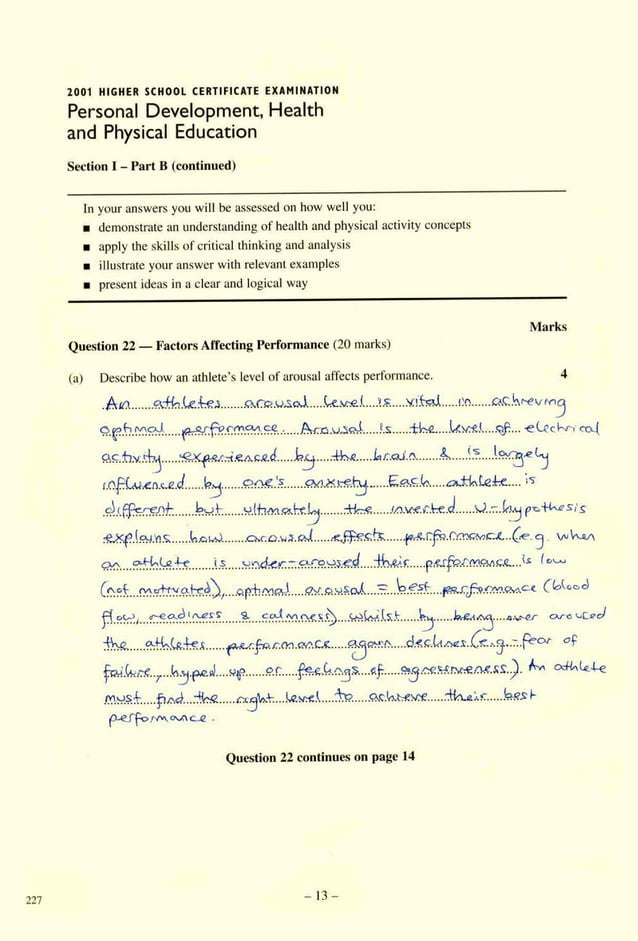 2001 HIGHER SCHOOL CERTIFICATE EXAMINATION
Personal Development, Health
and Physical Education
Section I – Part B (continued)
In your answers you will be assessed on how well you:
■ demonstrate an understanding of health and physical activity concepts
■ apply the skills of critical thinking and analysis
■ illustrate your answer with relevant examples
■ present ideas in a clear and logical way
Marks
Question 22 — Factors Affecting Performance (20 marks)
(a) Describe how an athlete's level of arousal affects performance. 4
An athletes arousal level is vital in achieving
optimal performance. Arousal is the level of electrical
activity experienced by the brain & is largely
influenced by one's anxiety. Each athlete is
different but ultimately the inverted U-hypothesis
explains how arousal effects performance (e.g. when
an athlete is under-aroused their performance is low
(not motivated), optimal arousal = best performance (blood
flow, readiness & calmness) whilst by being over aroused
the athletes performance again declines (e.g.- fear of
failure, hyped up or feelings of agressiveness). An athlete
must find the right level to achieve their best
performance.
Question 22 continues on page 14
227
– 13 –